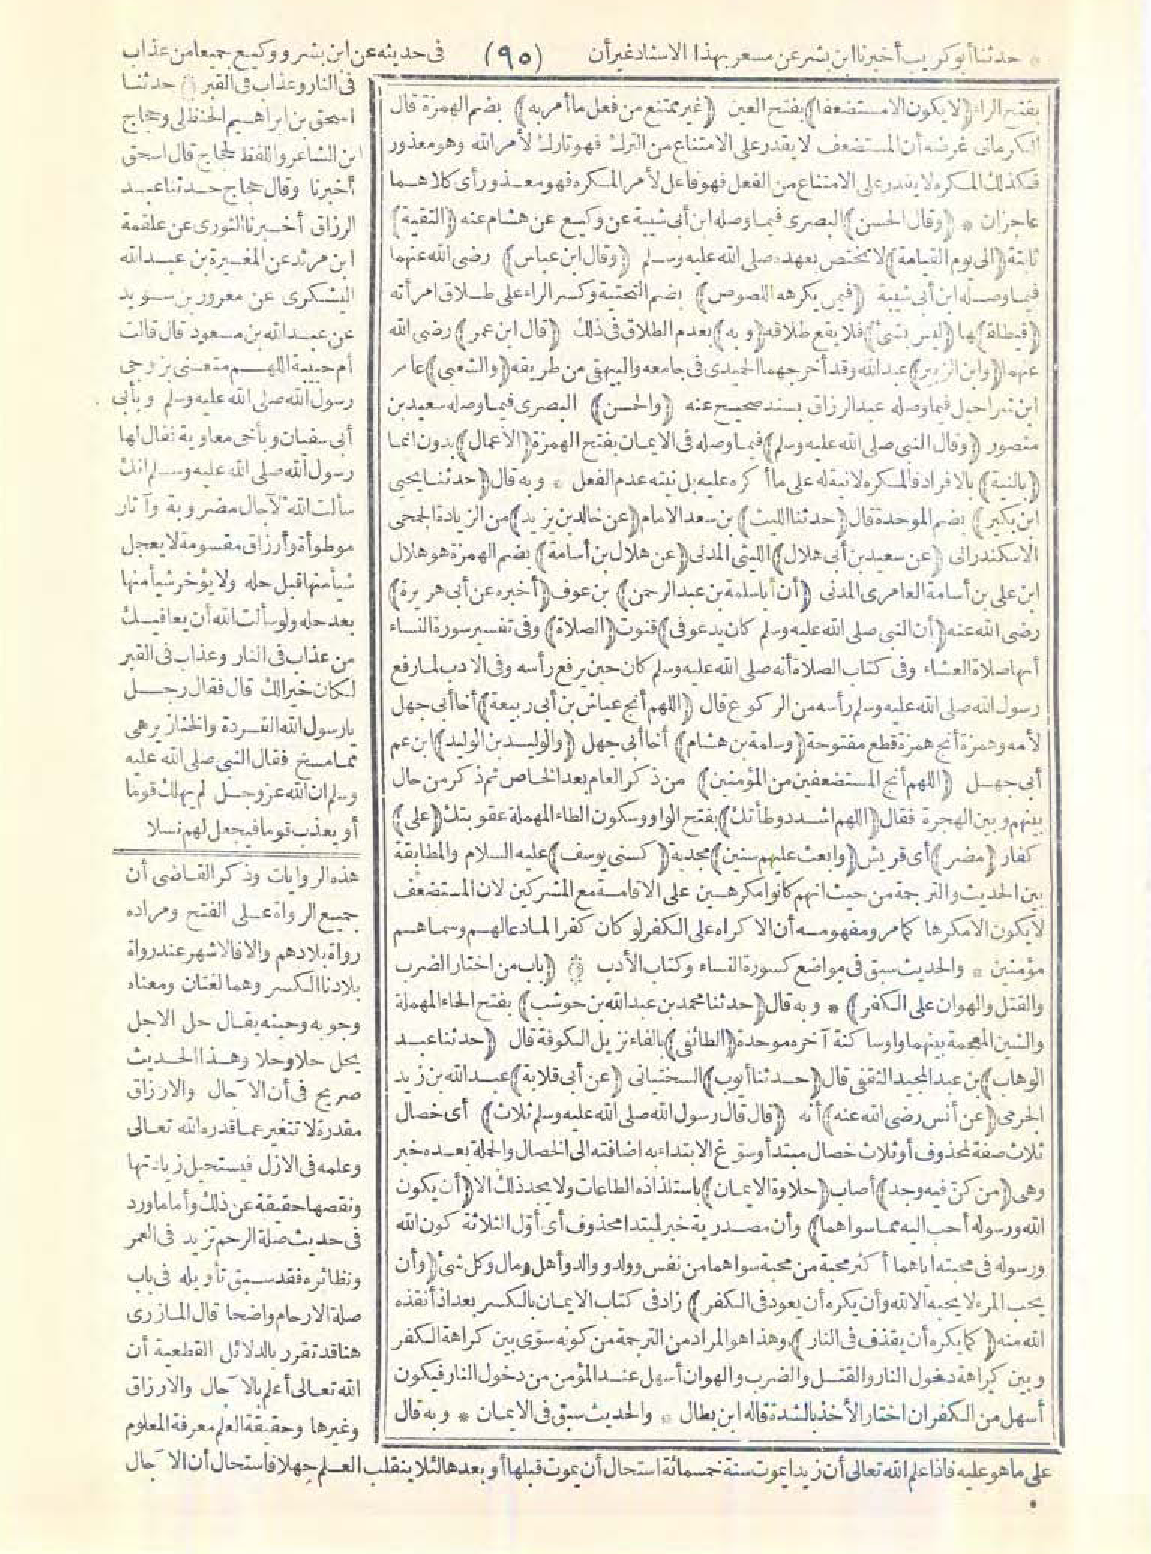 * حدثنا أبو كريب أخبرنا ابن بشر عن مسعر بهذا الاسناد غير أن (٩٥) فى حديثه عن ابن بشر ووكيع جميعا من عذاب
بفتح الراء (لا يكون الا مستضعفا) بفتح العين (غير ممتنع من فعل ما أمر به) بضم الهمزة قال
الكرمانى غرضه أن المستضعف لا يقدر على الامتناع من الترك فهو تارك لأمر الله وهو معذور
فكذلك المكره لا يقدر على الامتناع من الفعل فهو فاعل لأمر المكره فهو معذور أى كلاهما
عاجزان * (وقال الحسن) البصرى فيما وصله ابن أبى شيبة عن وكيع عن هشام عنه (التقية)
ثابتة (الى يوم القيامة) لا تختص بعهده صلى الله عليه وسلم (وقال ابن عباس) رضى الله عنهما
فيما وصله ابن أبى شيبة (فيمن يكرهه اللصوص) بضم التحتية وكسر الراء على طلاق امرأته
(فيطلق) ها (ليس بشئ) فلا يقع طلاقه (وبه) بعدم الطلاق فى ذلك (قال ابن عمر) رضى الله
عنهما (وابن الزبير) عبد الله وقد أخرجهما الحميدى فى جامعه والبيهقى من طريقه (والشعبى) عامر
ابن شراحيل فيما وصله عبد الرزاق بسند صحيح عنه (والحسن) البصرى فيما وصله سعيد بن
منصور (وقال النبى صلى الله عليه وسلم) فيما وصله فى الايمان بفتح الهمزة (الأعمال) بدون انما
(بالنية) بالافراد فالمكره لا نية له على ما أكره عليه بل نيته عدم الفعل * وبه قال (حدثنا يحيى
ابن بكير) بضم الموحدة قال (حدثنا الليث) بن سعد الامام (عن خالد بن يزيد) من الزيادة الجمحى
الاسكندرانى (عن سعيد بن أبى هلال) الليثى المدنى (عن هلال بن أسامة) بضم الهمزة هو هلال
ابن على بن أسامة العامرى المدنى (أن أبا سلمة بن عبد الرحمن) بن عوف (أخبره عن أبى هريرة)
رضى الله عنه (أن النبى صلى الله عليه وسلم كان يدعو فى) قنوت (الصلاة) وفى تفسير سورة النساء
أنها صلاة العشاء وفى كتاب الصلاة أنه صلى الله عليه وسلم كان حين يرفع رأسه وفى الادب لما رفع
رسول الله صلى الله عليه وسلم رأسه من الركوع قال (اللهم أنج عياش بن أبى ربيعة) أخا أبى جهل
لأمه وهمزة أنج همزة قطع مفتوحة (وسلمة بن هشام) أخا أبى جهل (والوليد بن الوليد) ابن عم
أبى جهل (اللهم أنج المستضعفين من المؤمنين) من ذكر العام بعد الخاص ثم ذكر من حال
بينهم وبين الهجرة فقال (اللهم اشدد وطأتك) بفتح الواو وسكون الطاء المهملة عقوبتك (على)
كفار (مضر) أى قريش (وابعث عليهم سنين) مجدبة (كسنى يوسف) عليه السلام والمطابقة
بين الحديث والترجمة من حيث انهم كانوا مكرهين على الاقامة مع المشركين لان المستضعف
لا يكون الا مكرها كما مر ومفهومه أن الاكراه على الكفر لو كان كفرا لما دعا لهم وسماهم
مؤمنين * والحديث سبق فى مواضع كسورة النساء وكتاب الأدب (باب من اختار الضرب
والقتل والهوان على الكفر) * وبه قال (حدثنا محمد بن عبد الله بن حوشب) بفتح الحاء المهملة
والشين المعجمة بينهما واو ساكنة آخره موحدة (الطائفى) بالفاء نزيل الكوفة قال (حدثنا عبد
الوهاب) بن عبد المجيد الثقفى قال (حدثنا أيوب) السختيانى (عن أبى قلابة) عبد الله بن زيد
الجرمى (عن أنس رضى الله عنه) أنه (قال قال رسول الله صلى الله عليه وسلم ثلاث) أى خصال
ثلاث صفة لمحذوف أو ثلاث خصال مبتدأ وسوغ الابتداء به اضافته الى الخصال والجملة بعده خبر
وهى (من كن فيه وجد) أصاب (حلاوة الايمان) باستلذاذه الطاعات ولا يجد ذلك الا (أن يكون
الله ورسوله أحب اليه مما سواهما) وأن مصدرية خبر لمبتدا محذوف أى أوّل الثلاثة كون الله
ورسوله فى محبته اياهما أكثر محبة من محبة سواهما من نفس وولد ووالد وأهل ومال وكل شئ (وأن
يحب المرء لا يحبه الا لله وأن يكره أن يعود فى الكفر) زاد فى كتاب الايمان بالكسر بعد اذ أنقذه
الله منه (كما يكره أن يقذف فى النار) وهذا هو المراد من الترجمة من كونه سوّى بين كراهة الكفر
وبين كراهة دخول النار والقتل والضرب والهوان أسهل عند المؤمن من دخول النار فيكون
أسهل من الكفر ان اختار الأخذ بالشدة قاله ابن بطال * والحديث سبق فى الايمان * وبه قال
فى النار وعذاب فى القبر حدثنا
اسحق بن ابراهيم الحنظلى وحجاج
ابن الشاعر واللفظ لحجاج قال اسحق
أخبرنا وقال حجاج حدثنا عبد
الرزاق أخبرنا الثورى عن علقمة
ابن مرثد عن المغيرة بن عبد الله
اليشكرى عن معرور بن سويد
عن عبد الله بن مسعود قال قالت
أم حبيبة اللهم متعنى بزوجى
رسول الله صلى الله عليه وسلم وبأبى
أبى سفيان وبأخى معاوية فقال لها
رسول الله صلى الله عليه وسلم انك
سألت الله لآجال مضروبة وآثار
موطوأة وأرزاق مقسومة لا يعجل
شيأ منها قبل حله ولا يؤخر شيأ منها
بعد حله ولو سألت الله أن يعافيك
من عذاب فى النار وعذاب فى القبر
لكان خيرا لك قال فقال رجل
يا رسول الله القردة والخنازير هى
مما مسخ فقال النبى صلى الله عليه
وسلم ان الله عز وجل لم يهلك قوما
أو يعذب قوما فيجعل لهم نسلا
هذه الروايات وذكر القاضى أن
جميع الرواة على الفتح ومراده
رواة بلادهم والا فالاشهر عند رواة
بلادنا الكسر وهما لغتان ومعناه
وجوبه وحينه يقال حل الاجل
يحل حلا وحلا وهذا الحديث
صريح فى أن الآجال والارزاق
مقدرة لا تتغير عما قدره الله تعالى
وعلمه فى الازل فيستحيل زيادتها
ونقصها حقيقة عن ذلك وأما ما ورد
فى حديث صلة الرحم تزيد فى العمر
ونظائره فقد سبق تأويله فى باب
صلة الارحام واضحا قال المازرى
هنا قد تقرر بالدلائل القطعية أن
الله تعالى أعلم بالآجال والارزاق
وغيرها وحقيقة العلم معرفة المعلوم
على ما هو عليه فاذا علم الله تعالى أن زيدا يموت سنة خمسمائة استحال أن يموت قبلها أو بعدها لئلا ينقلب العلم جهلا فاستحال أن الآجال